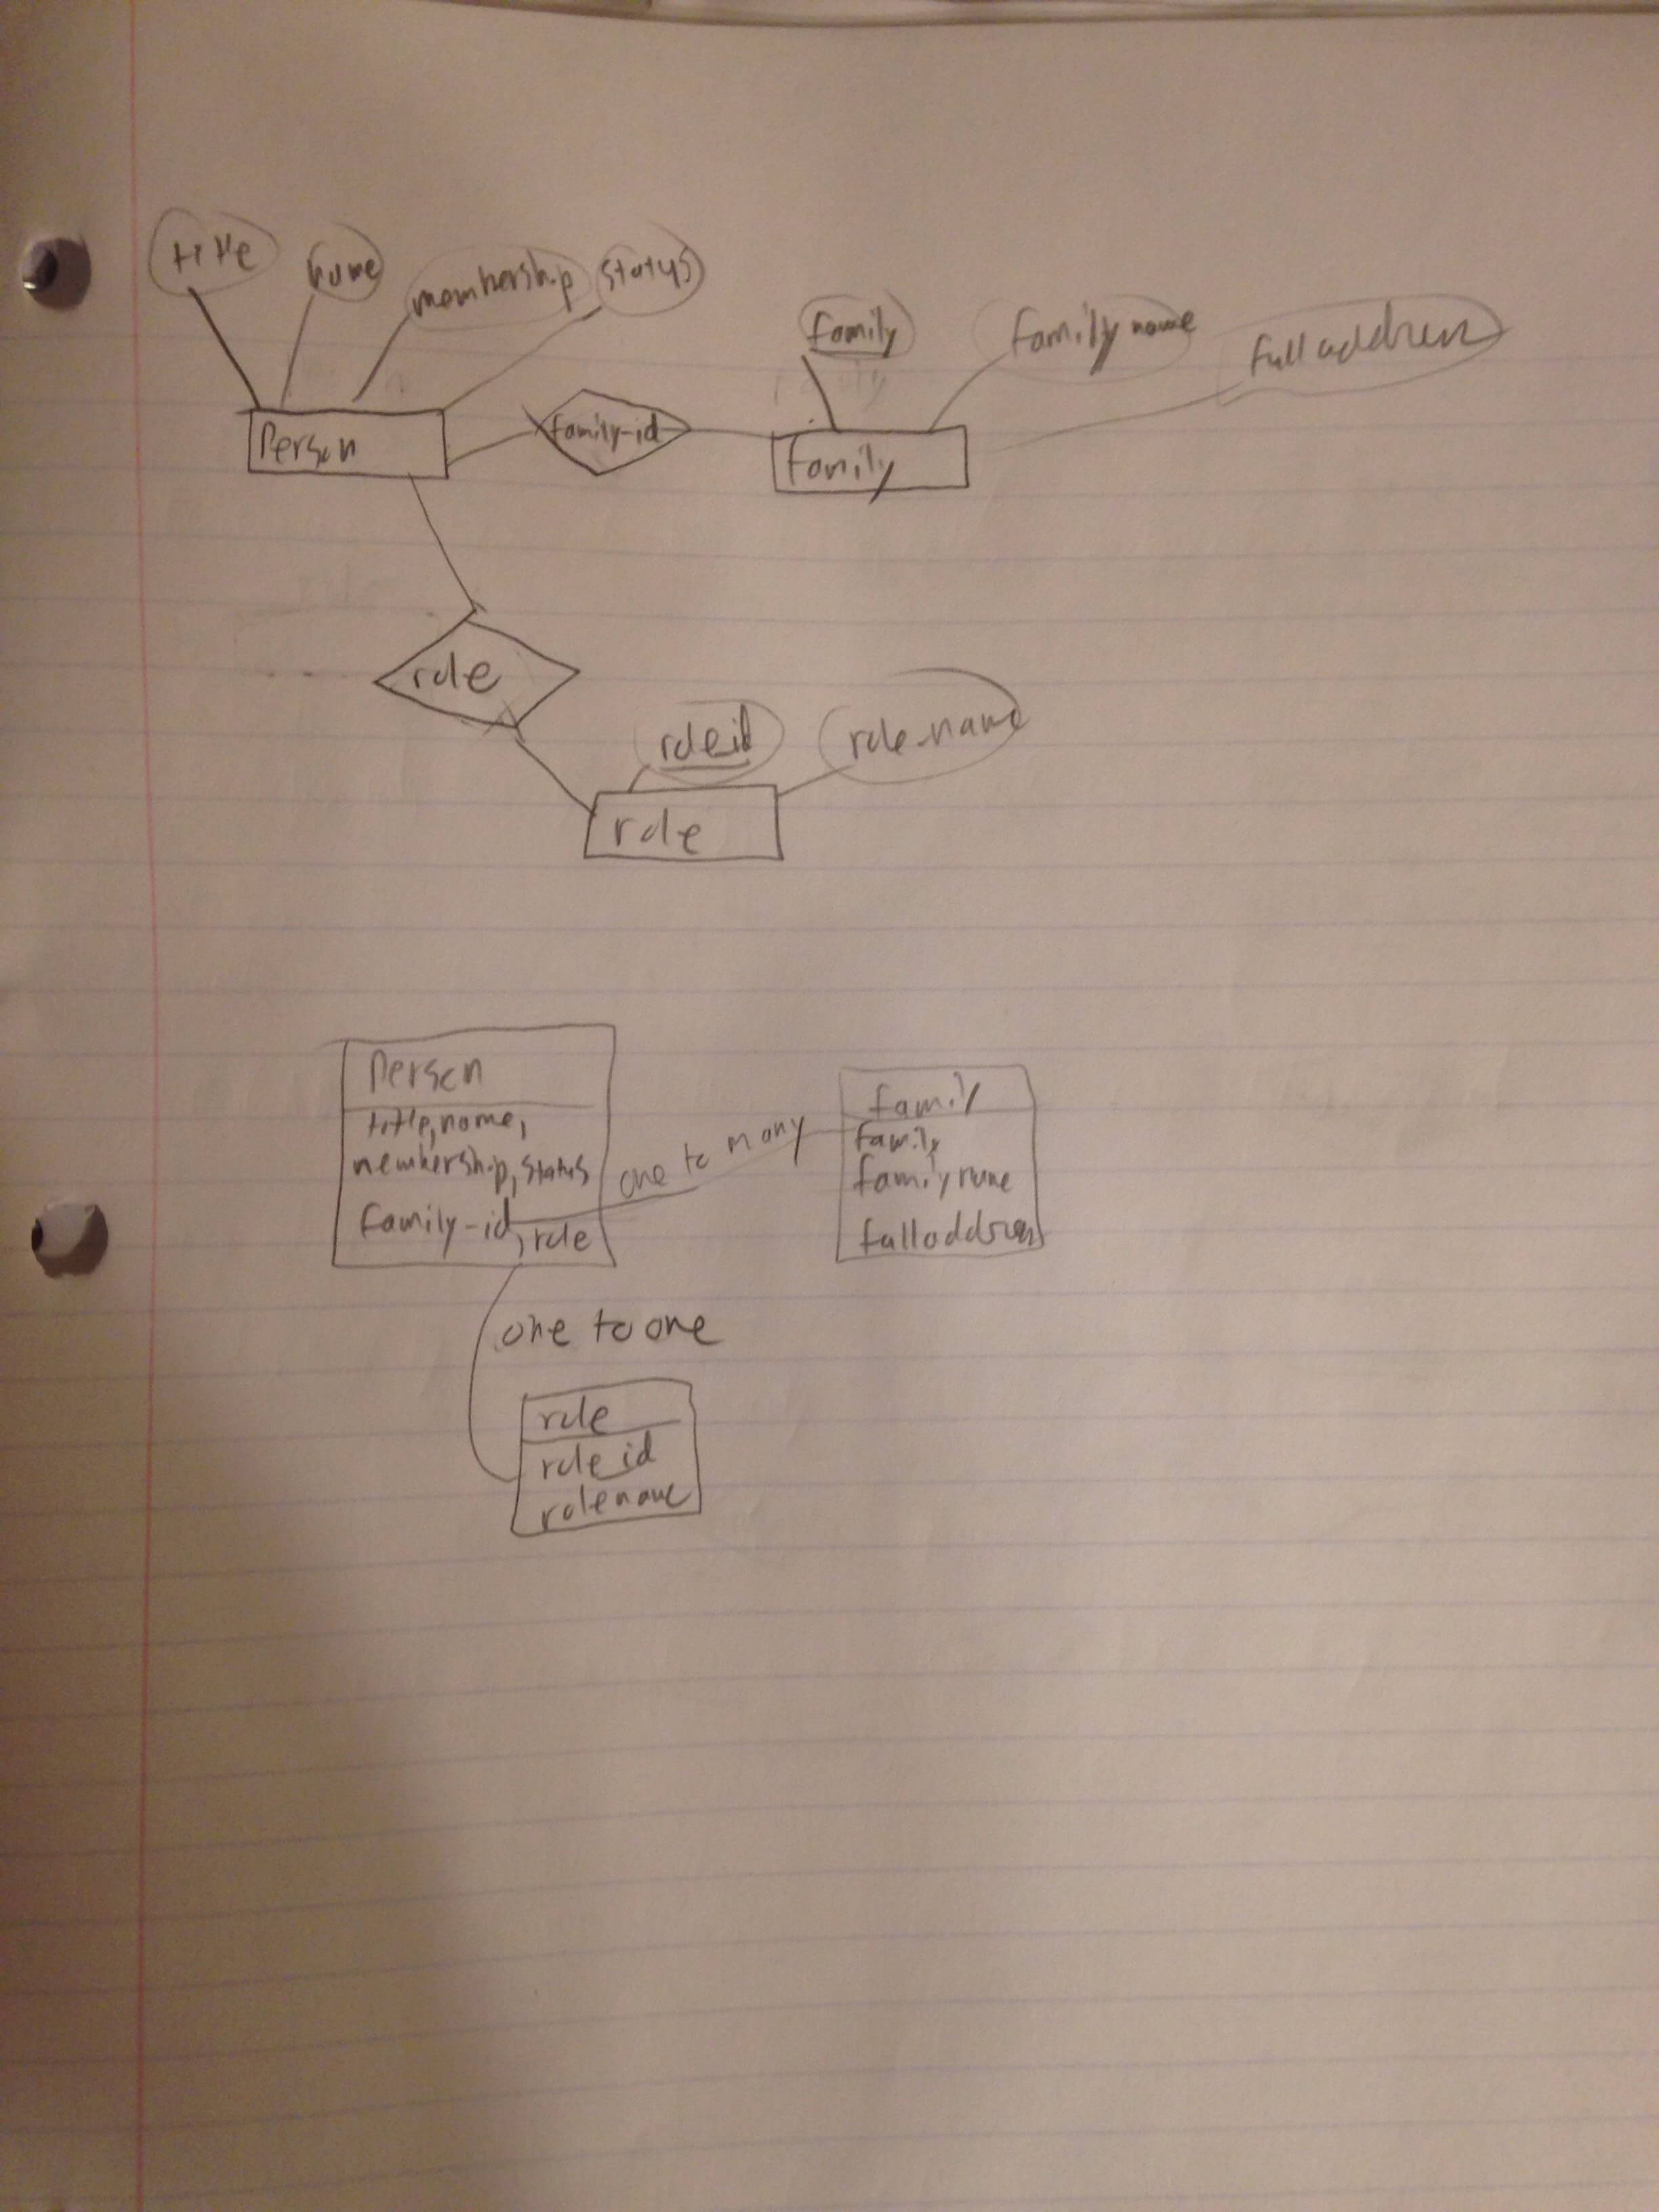 title name membership status
family family name full address
Person family-id family
role
roleid role-name
role
Person
title, name,
membership, status
family-id, role
one to many
family
family
family name
full address
one to one
role
role id
role name